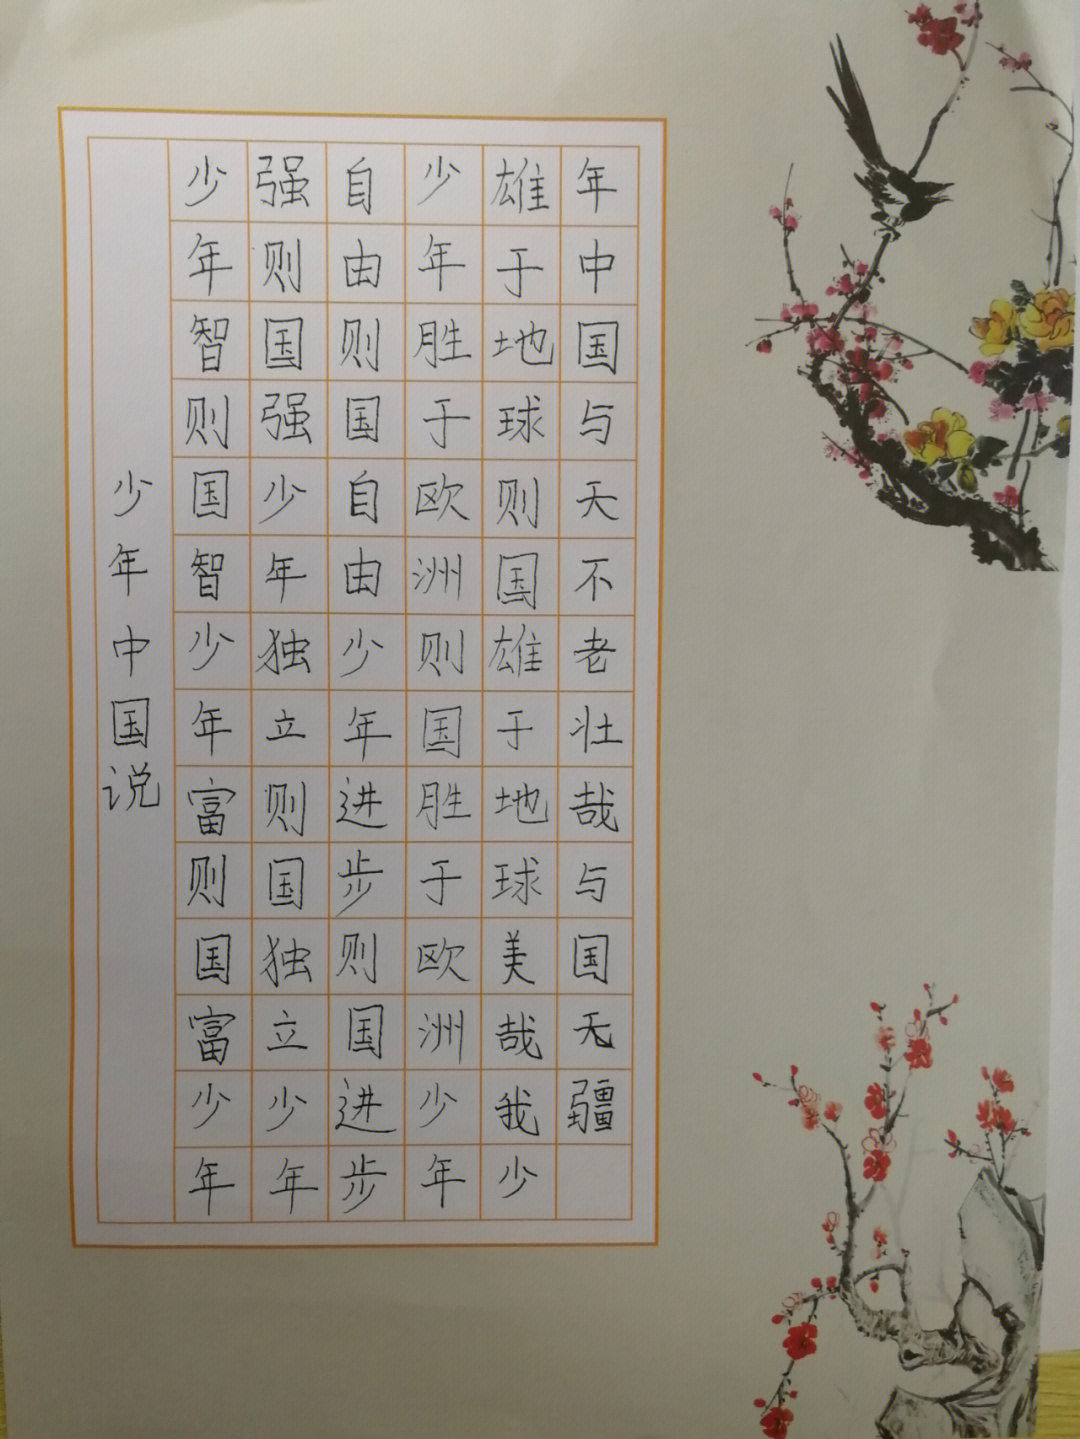 少年中国说
少年智则国智少年富则国富少年
强则国强少年独立则国独立少年
自由则国自由少年进步则国进步
少年胜于欧洲则国胜于欧洲少年
雄于地球则国雄于地球美哉我少
年中国与天不老壮哉与国无疆